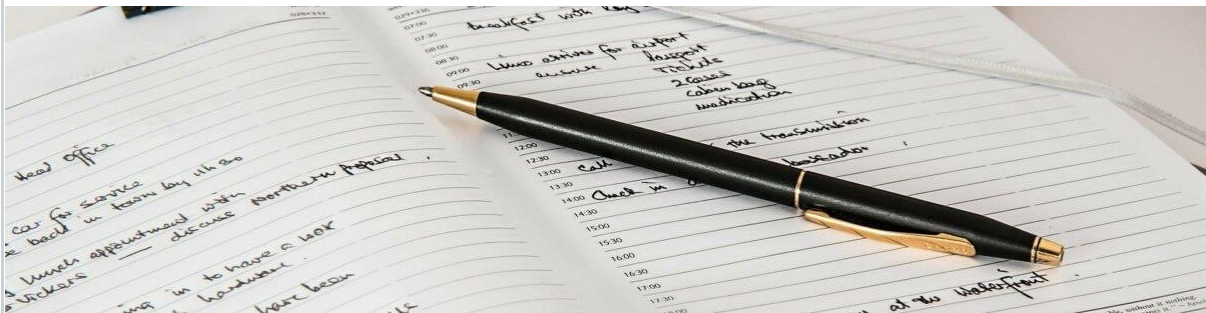 028+337
Head Office
car for service
back in town by 11h30
lunch appointment with
Vickers — discuss Northern proposal.
ing in to have a look
hardware.
have been
029+336
07:00 Breakfast with
07:30
08:00
08:30
09:00 Limo arrives for airport
09:30 ensure Passport
Tickets
2 Cases
Cabin bag
medication
12:00 the transmission
12:30
13:00 Call
13:30
14:00 Check in
14:30
15:00
15:30
16:00
16:30
17:00
17:30
at the Waterfront.
without it nothing.